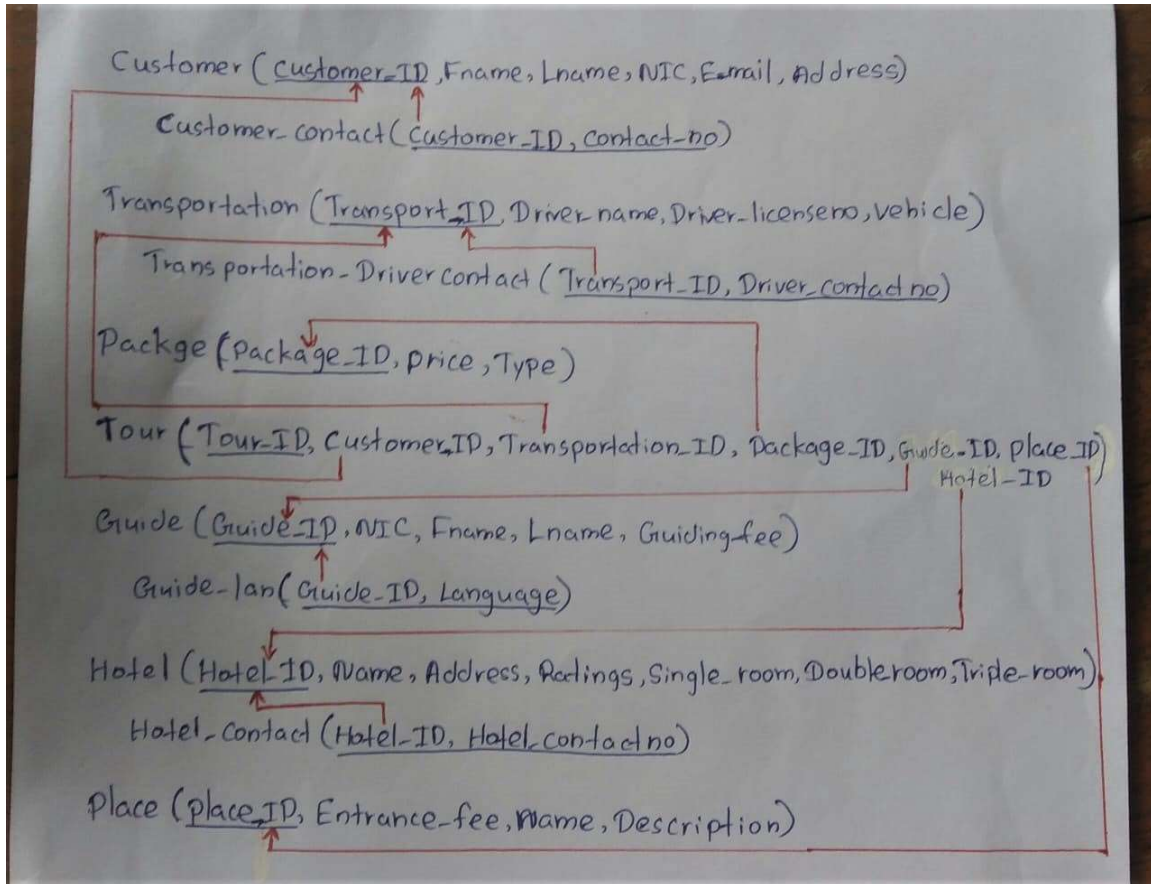 Customer (Customer_ID, Fname, Lname, NIC, E-mail, Address)
Customer_contact (Customer_ID, Contact_no)
Transportation (Transport_ID, Driver name, Driver_licenseno, vehicle)
Transportation_Driver contact (Transport_ID, Driver_contact no)
Packge (Package_ID, Price, Type)
Tour (Tour_ID, Customer_ID, Transportation_ID, Package_ID, Guide_ID, Place_ID)
Hotel_ID
Guide (Guide_ID, NIC, Fname, Lname, Guiding_fee)
Guide_lan (Guide_ID, Language)
Hotel (Hotel_ID, Name, Address, Ratings, Single_room, Double room, Triple_room)
Hotel_contact (Hotel_ID, Hotel_contact no)
Place (Place_ID, Entrance_fee, Name, Description)